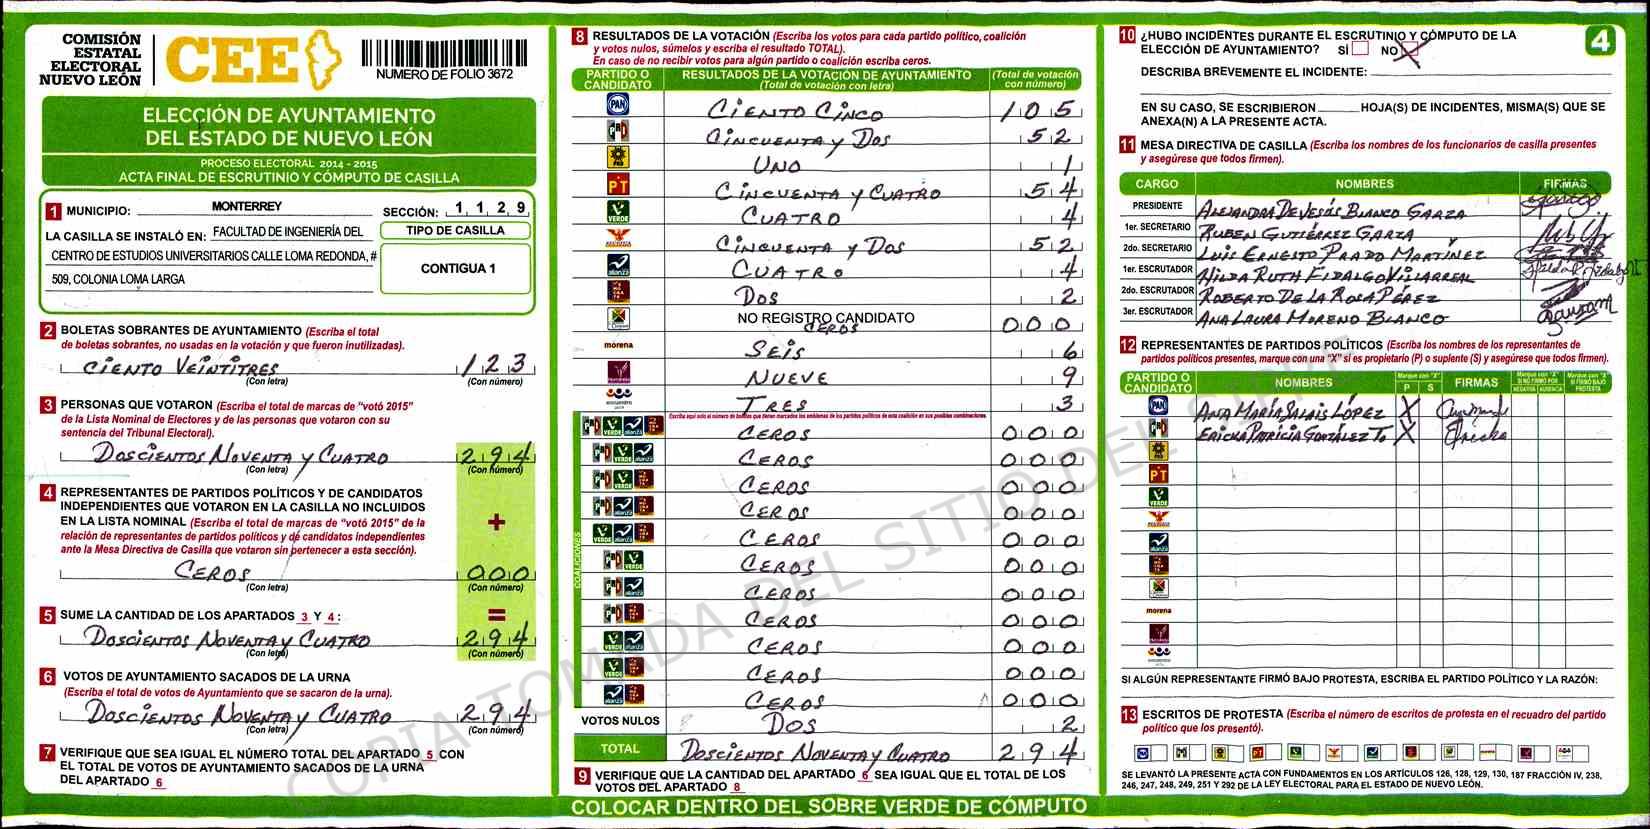 COMISIÓN
ESTATAL
ELECTORAL
NUEVO LEÓN
CEE
NUMERO DE FOLIO 3672
ELECCIÓN DE AYUNTAMIENTO
DEL ESTADO DE NUEVO LEÓN
PROCESO ELECTORAL 2014 - 2015
ACTA FINAL DE ESCRUTINIO Y CÓMPUTO DE CASILLA
1 MUNICIPIO: MONTERREY SECCIÓN: 1 1 2 9
LA CASILLA SE INSTALÓ EN: FACULTAD DE INGENIERÍA DEL
CENTRO DE ESTUDIOS UNIVERSITARIOS CALLE LOMA REDONDA, #
509, COLONIA LOMA LARGA
TIPO DE CASILLA
CONTIGUA 1
2 BOLETAS SOBRANTES DE AYUNTAMIENTO (Escriba el total
de boletas sobrantes, no usadas en la votación y que fueron inutilizadas).
CIENTO VEINTITRES 1 2 3
(Con letra) (Con número)
3 PERSONAS QUE VOTARON (Escriba el total de marcas de "votó 2015"
de la Lista Nominal de Electores y de las personas que votaron con su
sentencia del Tribunal Electoral).
DOSCIENTOS NOVENTA Y CUATRO 2 9 4
(Con letra) (Con número)
4 REPRESENTANTES DE PARTIDOS POLÍTICOS Y DE CANDIDATOS
INDEPENDIENTES QUE VOTARON EN LA CASILLA NO INCLUIDOS
EN LA LISTA NOMINAL (Escriba el total de marcas de "votó 2015" de la
relación de representantes de partidos políticos y de candidatos independientes
ante la Mesa Directiva de Casilla que votaron sin pertenecer a esta sección).
+
CEROS 0 0 0
(Con letra) (Con número)
5 SUME LA CANTIDAD DE LOS APARTADOS 3 Y 4 : =
DOSCIENTOS NOVENTA Y CUATRO 2 9 4
(Con letra) (Con número)
6 VOTOS DE AYUNTAMIENTO SACADOS DE LA URNA
(Escriba el total de votos de Ayuntamiento que se sacaron de la urna).
DOSCIENTOS NOVENTA Y CUATRO 2 9 4
(Con letra) (Con número)
7 VERIFIQUE QUE SEA IGUAL EL NÚMERO TOTAL DEL APARTADO 5 CON
EL TOTAL DE VOTOS DE AYUNTAMIENTO SACADOS DE LA URNA
DEL APARTADO 6
8 RESULTADOS DE LA VOTACIÓN (Escriba los votos para cada partido político, coalición
y votos nulos, súmelos y escriba el resultado TOTAL).
En caso de no recibir votos para algún partido o coalición escriba ceros.
PARTIDO O CANDIDATO RESULTADOS DE LA VOTACIÓN DE AYUNTAMIENTO (Total de votación con letra) (Total de votación con número)
PAN CIENTO CINCO 1 0 5
PRD CINCUENTA Y DOS 5 2
UNO 1
PT CINCUENTA Y CUATRO 5 4
VERDE CUATRO 4
CINCUENTA Y DOS 5 2
alianza CUATRO 4
DOS 2
NO REGISTRO CANDIDATO
CEROS 0 0 0
morena SEIS 6
NUEVE 9
encuentro TRES 3
Escriba aquí solo el número de boletas que tienen marcados los emblemas de los partidos políticos de esta coalición en sus posibles combinaciones.
COALICIONES
CEROS 0 0 0
CEROS 0 0 0
CEROS 0 0 0
CEROS 0 0 0
CEROS 0 0 0
CEROS 0 0 0
CEROS 0 0 0
CEROS 0 0 0
CEROS 0 0 0
CEROS 0 0 0
CEROS 0 0 0
VOTOS NULOS DOS 2
TOTAL DOSCIENTOS NOVENTA Y CUATRO 2 9 4
9 VERIFIQUE QUE LA CANTIDAD DEL APARTADO 6 SEA IGUAL QUE EL TOTAL DE LOS
VOTOS DEL APARTADO 8
COLOCAR DENTRO DEL SOBRE VERDE DE CÓMPUTO
10 ¿HUBO INCIDENTES DURANTE EL ESCRUTINIO Y CÓMPUTO DE LA
ELECCIÓN DE AYUNTAMIENTO? SÍ NO X
4
DESCRIBA BREVEMENTE EL INCIDENTE:
EN SU CASO, SE ESCRIBIERON HOJA(S) DE INCIDENTES, MISMA(S) QUE SE
ANEXA(N) A LA PRESENTE ACTA.
11 MESA DIRECTIVA DE CASILLA (Escriba los nombres de los funcionarios de casilla presentes
y asegúrese que todos firmen).
CARGO NOMBRES FIRMAS
PRESIDENTE ALEJANDRA DE JESÚS BLANCO GARZA
1er. SECRETARIO RUBEN GUTIÉRREZ GARZA
2do. SECRETARIO LUIS ERNESTO PRADO MARTÍNEZ
1er. ESCRUTADOR HILDA RUTH FIDALGO VILLARREAL
2do. ESCRUTADOR ROBERTO DE LA ROSA PÉREZ
3er. ESCRUTADOR ANA LAURA MORENO BLANCO
12 REPRESENTANTES DE PARTIDOS POLÍTICOS (Escriba los nombres de los representantes de
partidos políticos presentes, marque con una "X" si es propietario (P) o suplente (S) y asegúrese que todos firmen).
PARTIDO O CANDIDATO NOMBRES Marque con "X" P S FIRMAS Marque con "X" SI NO FIRMÓ POR NEGATIVA AUSENCIA Marque con "X" SI FIRMÓ BAJO PROTESTA
PAN ANA MARÍA SALAIS LÓPEZ X
ERICKA PATRICIA GONZÁLEZ T. X Ericka
PT
VERDE
alianza
morena
SI ALGÚN REPRESENTANTE FIRMÓ BAJO PROTESTA, ESCRIBA EL PARTIDO POLÍTICO Y LA RAZÓN:
13 ESCRITOS DE PROTESTA (Escriba el número de escritos de protesta en el recuadro del partido
político que los presentó).
SE LEVANTÓ LA PRESENTE ACTA CON FUNDAMENTOS EN LOS ARTÍCULOS 126, 128, 129, 130, 187 FRACCIÓN IV, 238,
246, 247, 248, 249, 251 Y 292 DE LA LEY ELECTORAL PARA EL ESTADO DE NUEVO LEÓN.
COPIA TOMADA DEL SITIO DEL SIPRE